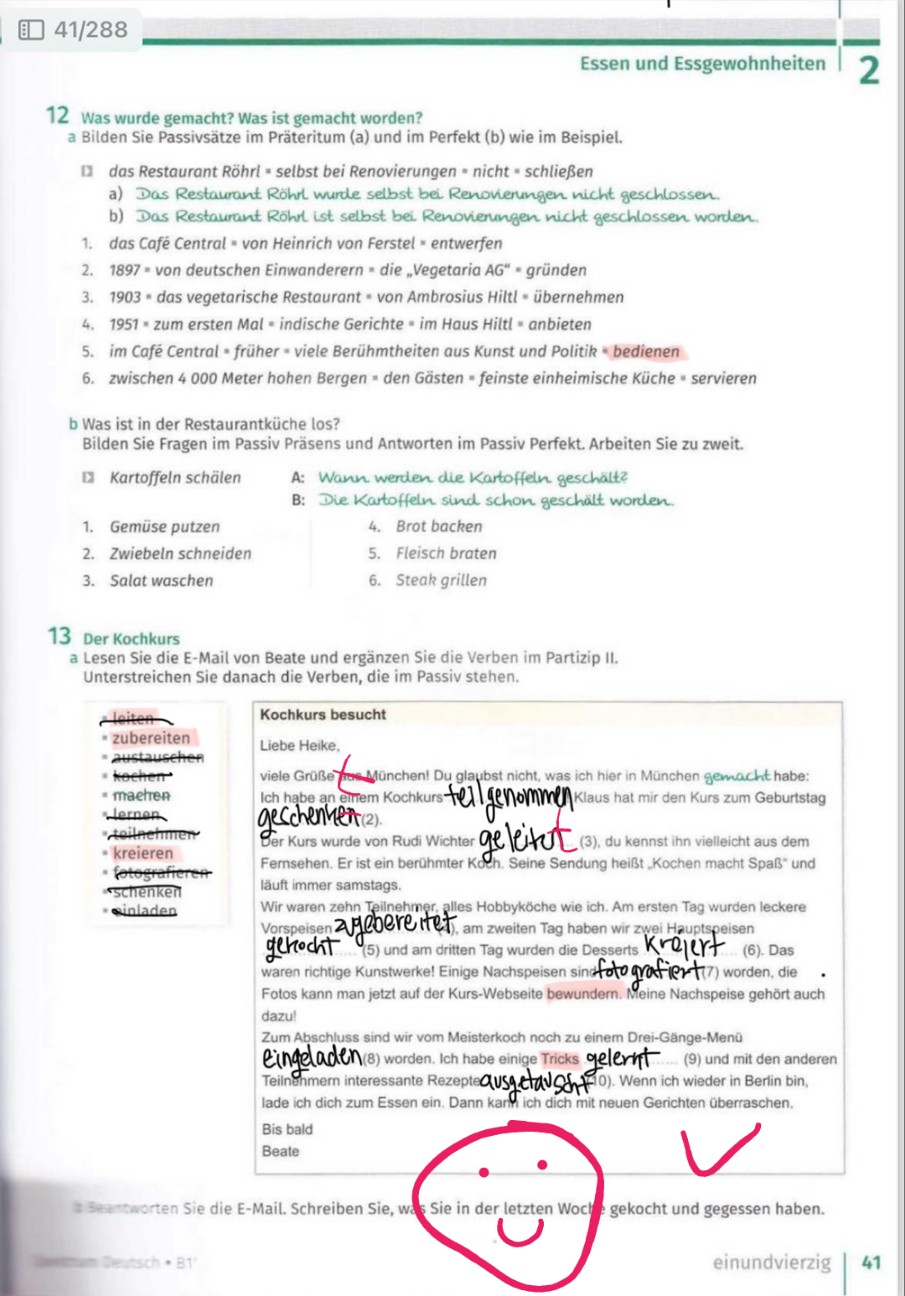 41/288
Essen und Essgewohnheiten 2
12 Was wurde gemacht? Was ist gemacht worden?
a Bilden Sie Passivsätze im Präteritum (a) und im Perfekt (b) wie im Beispiel.
das Restaurant Röhrl ▪ selbst bei Renovierungen ▪ nicht ▪ schließen
a) Das Restaurant Röhrl wurde selbst bei Renovierungen nicht geschlossen.
b) Das Restaurant Röhrl ist selbst bei Renovierungen nicht geschlossen worden.
1. das Café Central ▪ von Heinrich von Ferstel ▪ entwerfen
2. 1897 ▪ von deutschen Einwanderern ▪ die „Vegetaria AG“ ▪ gründen
3. 1903 ▪ das vegetarische Restaurant ▪ von Ambrosius Hiltl ▪ übernehmen
4. 1951 ▪ zum ersten Mal ▪ indische Gerichte ▪ im Haus Hiltl ▪ anbieten
5. im Café Central ▪ früher ▪ viele Berühmtheiten aus Kunst und Politik ▪ bedienen
6. zwischen 4 000 Meter hohen Bergen ▪ den Gästen ▪ feinste einheimische Küche ▪ servieren
b Was ist in der Restaurantküche los?
Bilden Sie Fragen im Passiv Präsens und Antworten im Passiv Perfekt. Arbeiten Sie zu zweit.
Kartoffeln schälen A: Wann werden die Kartoffeln geschält?
B: Die Kartoffeln sind schon geschält worden.
1. Gemüse putzen 4. Brot backen
2. Zwiebeln schneiden 5. Fleisch braten
3. Salat waschen 6. Steak grillen
13 Der Kochkurs
a Lesen Sie die E-Mail von Beate und ergänzen Sie die Verben im Partizip II.
Unterstreichen Sie danach die Verben, die im Passiv stehen.
▪ leiten
▪ zubereiten
▪ austauschen
▪ kochen
▪ machen
▪ lernen
▪ teilnehmen
▪ kreieren
▪ fotografieren
▪ schenken
▪ einladen
Kochkurs besucht
Liebe Heike,
viele Grüße aus München! Du glaubst nicht, was ich hier in München gemacht habe:
Ich habe an einem Kochkurs teilgenommen Klaus hat mir den Kurs zum Geburtstag
geschenken t (2).
Der Kurs wurde von Rudi Wichter geleitet (3), du kennst ihn vielleicht aus dem
Fernsehen. Er ist ein berühmter Koch. Seine Sendung heißt „Kochen macht Spaß“ und
läuft immer samstags.
Wir waren zehn Teilnehmer, alles Hobbyköche wie ich. Am ersten Tag wurden leckere
Vorspeisen zugebereitet, am zweiten Tag haben wir zwei Hauptspeisen
gekocht (5) und am dritten Tag wurden die Desserts kreiert (6). Das
waren richtige Kunstwerke! Einige Nachspeisen sind fotografiert (7) worden, die
Fotos kann man jetzt auf der Kurs-Webseite bewundern. Meine Nachspeise gehört auch
dazu!
Zum Abschluss sind wir vom Meisterkoch noch zu einem Drei-Gänge-Menü
eingeladen (8) worden. Ich habe einige Tricks gelernt (9) und mit den anderen
Teilnehmern interessante Rezepte ausgetauscht 10). Wenn ich wieder in Berlin bin,
lade ich dich zum Essen ein. Dann kann ich dich mit neuen Gerichten überraschen.
Bis bald
Beate
b Beantworten Sie die E-Mail. Schreiben Sie, was Sie in der letzten Woche gekocht und gegessen haben.
Spektrum Deutsch • B1+ einundvierzig 41